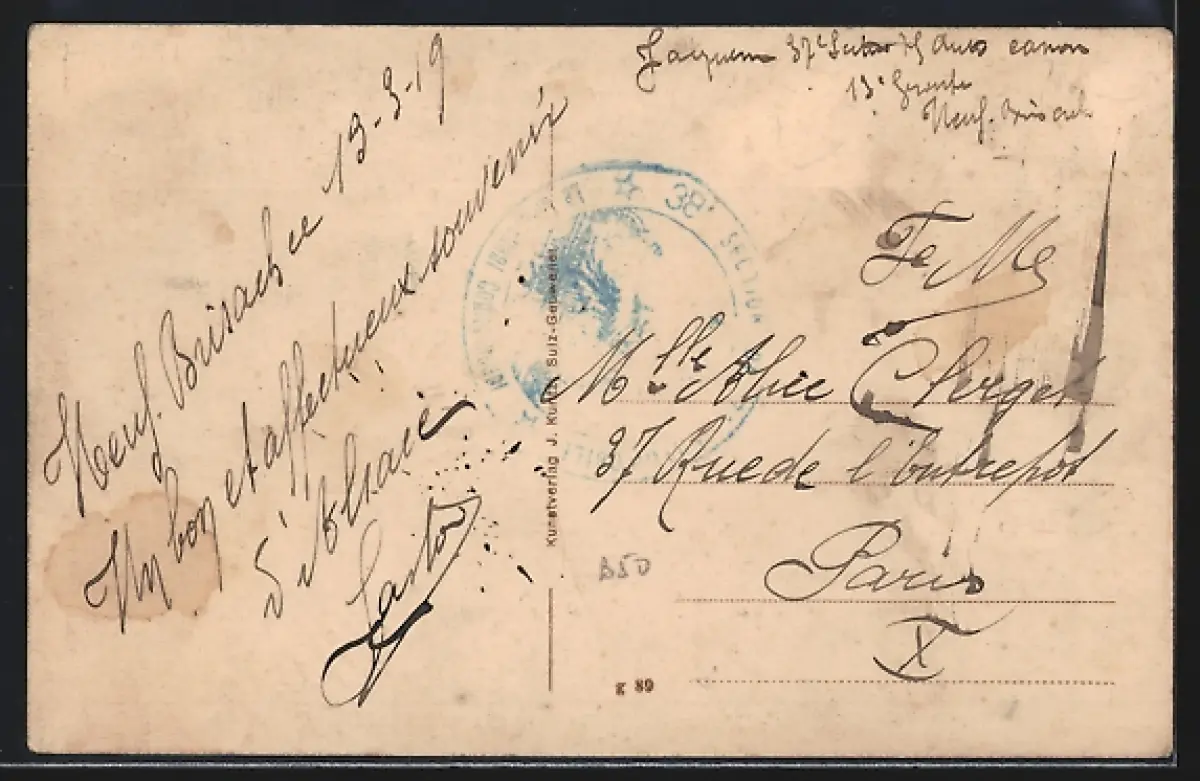 Neuf-Brisach le 13-3-19
Un bon et affectueux souvenir
d'Alsace
Gaston
37e 75 autos canon
13e
Neuf-Brisach
38e SECTION
Kunstverlag J. Sulz-Gebweiler
Mlle Alice Clerget
37 Rue de l'Entrepôt
Paris
X
B50
E 89